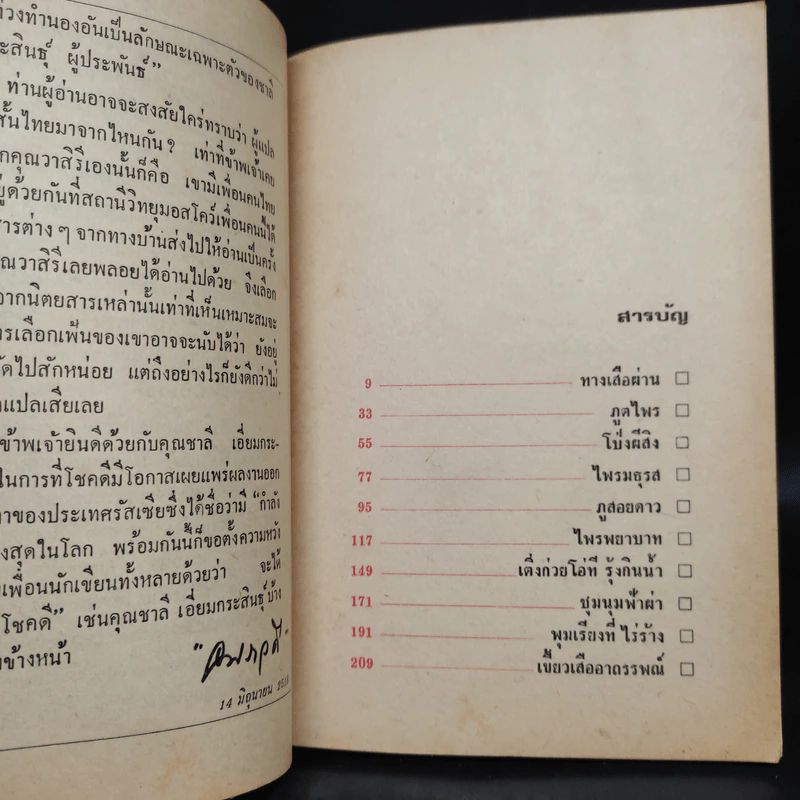 ท่วงทำนองอันเป็นลักษณะเฉพาะตัวของชาลี
ะสินธุ์ ผู้ประพันธ์”
ท่านผู้อ่านอาจจะสงสัยใคร่ทราบว่า ผู้แปล
สั้นไทยมาจากไหนกัน ? เท่าที่ข้าพเจ้าเคย
กคุณวาสิรีเองนั้นก็คือ เขามีเพื่อนคนไทย
ยู่ด้วยกันที่สถานีวิทยุมอสโคว์เพื่อนคนนี้ได้
สารต่าง ๆ จากทางบ้านส่งไปให้อ่านเป็นครั้ง
ุณวาสิรีเลยพลอยได้อ่านไปด้วย จึงเลือก
จากนิตยสารเหล่านั้นเท่าที่เห็นเหมาะสมจะ
ารเลือกเฟ้นของเขาอาจจะนับได้ว่า ยังอยู่
ัดไปสักหน่อย แต่ถึงอย่างไรก็ยังดีกว่าไม่
แปลเสียเลย
ข้าพเจ้ายินดีด้วยกับคุณชาลี เอี่ยมกระ-
ในการที่โชคดีมีโอกาสเผยแพร่ผลงานออก
าของประเทศรัสเซียซึ่งได้ชื่อว่ามี “กำลัง
งสุดในโลก พร้อมกันนี้ก็ขอตั้งความหวัง
เพื่อนนักเขียนทั้งหลายด้วยว่า จะได้
โชคดี” เช่นคุณชาลี เอี่ยมกระสินธุ์บ้าง
ข้างหน้า
14 มิถุนายน
สารบัญ
9 ทางเสือผ่าน
33 ภูตไพร
55 โป่งผีสิง
77 ไพรมธุรส
95 ภูสอยดาว
117 ไพรพยาบาท
149 เติ่งก่วยโอ่ที รุ้งกินน้ำ
171 ชุมนุมฟ้าผ่า
191 พุมเรียงที่ ไร่ร้าง
209 เขี้ยวเสืออาถรรพณ์